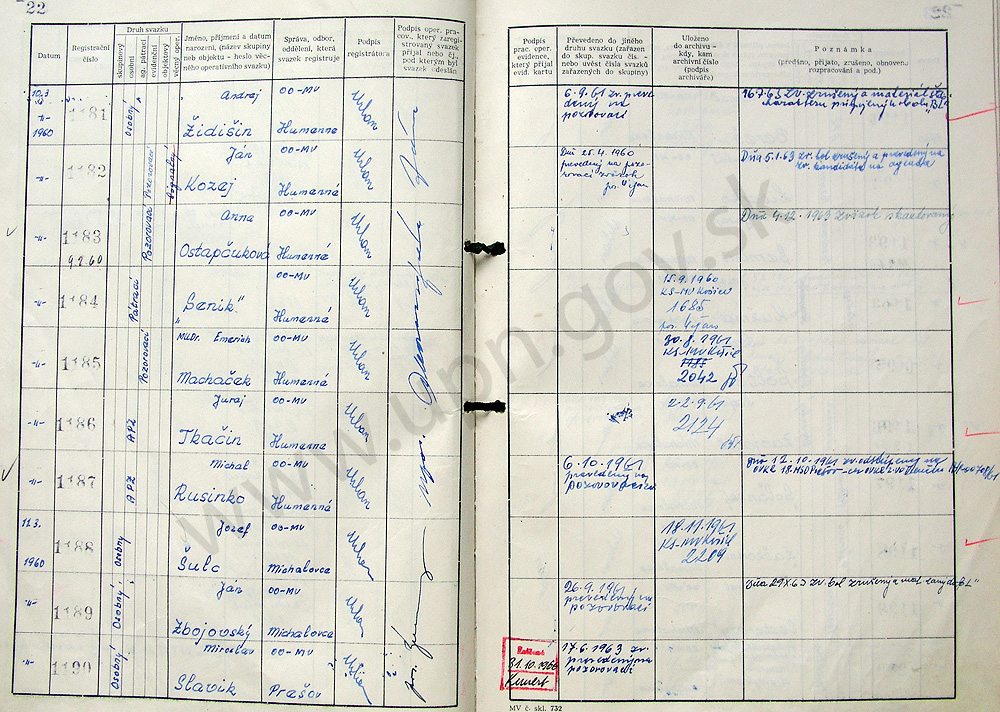 22
Datum
Registrační číslo
Druh svazku
skupinový
osobní
ag. pátrací
evidenční
objektový
věcný oper.
Jméno, příjmení a datum
narození, (název skupiny
neb objektu - heslo věc-
ného operativního svazku)
Správa, odbor,
oddělení, která
svazek registruje
Podpis
registrátora
Podpis oper. pra-
cov., který zaregi-
strovaný svazek
přijal nebo čj.,
pod kterým byl
svazek odeslán
Podpis
prac. oper.
evidence,
který přijal
evid. kartu
Převedeno do jiného
druhu svazku (zařazen
do skup. svazku čís. -
nebo uvést čísla svazků
zařazených do skupiny)
Uloženo
do archivu -
kdy, kam
archivní číslo
(podpis
archiváře)
Poznámka
(předáno, přijato, zrušeno, obnoveno,
rozpracování a pod.)
1960
1181
Osobný
Andrej
Židišin
OO-MV
Humenné
Urban
6.9.61 zv. preve
dený na
pozorovací
16.7.63 zv. zrušený a materiál
-"-
1182
Pozorovací
Ján
Kozej
OO-MV
Humenné
Urban
Dňa 25.4.1960
prevedený na pozo-
rovací zväzok
Dňa 5.1.63 zv. bol zrušený a prevedený na
zv. kandidáta na agenta
-"-
1183
9.2.60
Pozorovací
Anna
Ostapčuková
OO-MV
Humenné
Urban
Dňa 4.12.1963 zväzok skartovaný
-"-
1184
Pátrací
„Senik"
OO-MV
Humenné
Urban
15.9.1960
KS-MV Košice
1685
-"-
1185
Pozorovací
MUDr. Emerich
Machaček
OO-MV
Humenné
Urban
30.8.1961
KS-MV Košice
2042
-"-
1186
APZ
Juraj
Tkačin
OO-MV
Humenné
Urban
2.9.61
2124
-"-
1187
APZ
Michal
Rusinko
OO-MV
Humenné
Urban
6.10.1961
prevedený na
pozorovací
Dňa 12.10.1961
11.3.
1960
1188
Osobný
Jozef
Šulc
OO-MV
Michalovce
Urban
18.11.1961
KS-MV Košice
2209
-"-
1189
Osobný
Ján
Zbojovský
OO-MV
Michalovce
Urban
26.9.1961
prevedený na
pozorovací
Dňa 29.X.63 zv. bol zrušený a mat.
-"-
1190
Osobný
Miroslav
Slavik
OO-MV
Prešov
Urban
31.10.1966
17.6.1963 zv.
prevedený na
pozorovací
MV č. skl. 732
www.upn.gov.sk